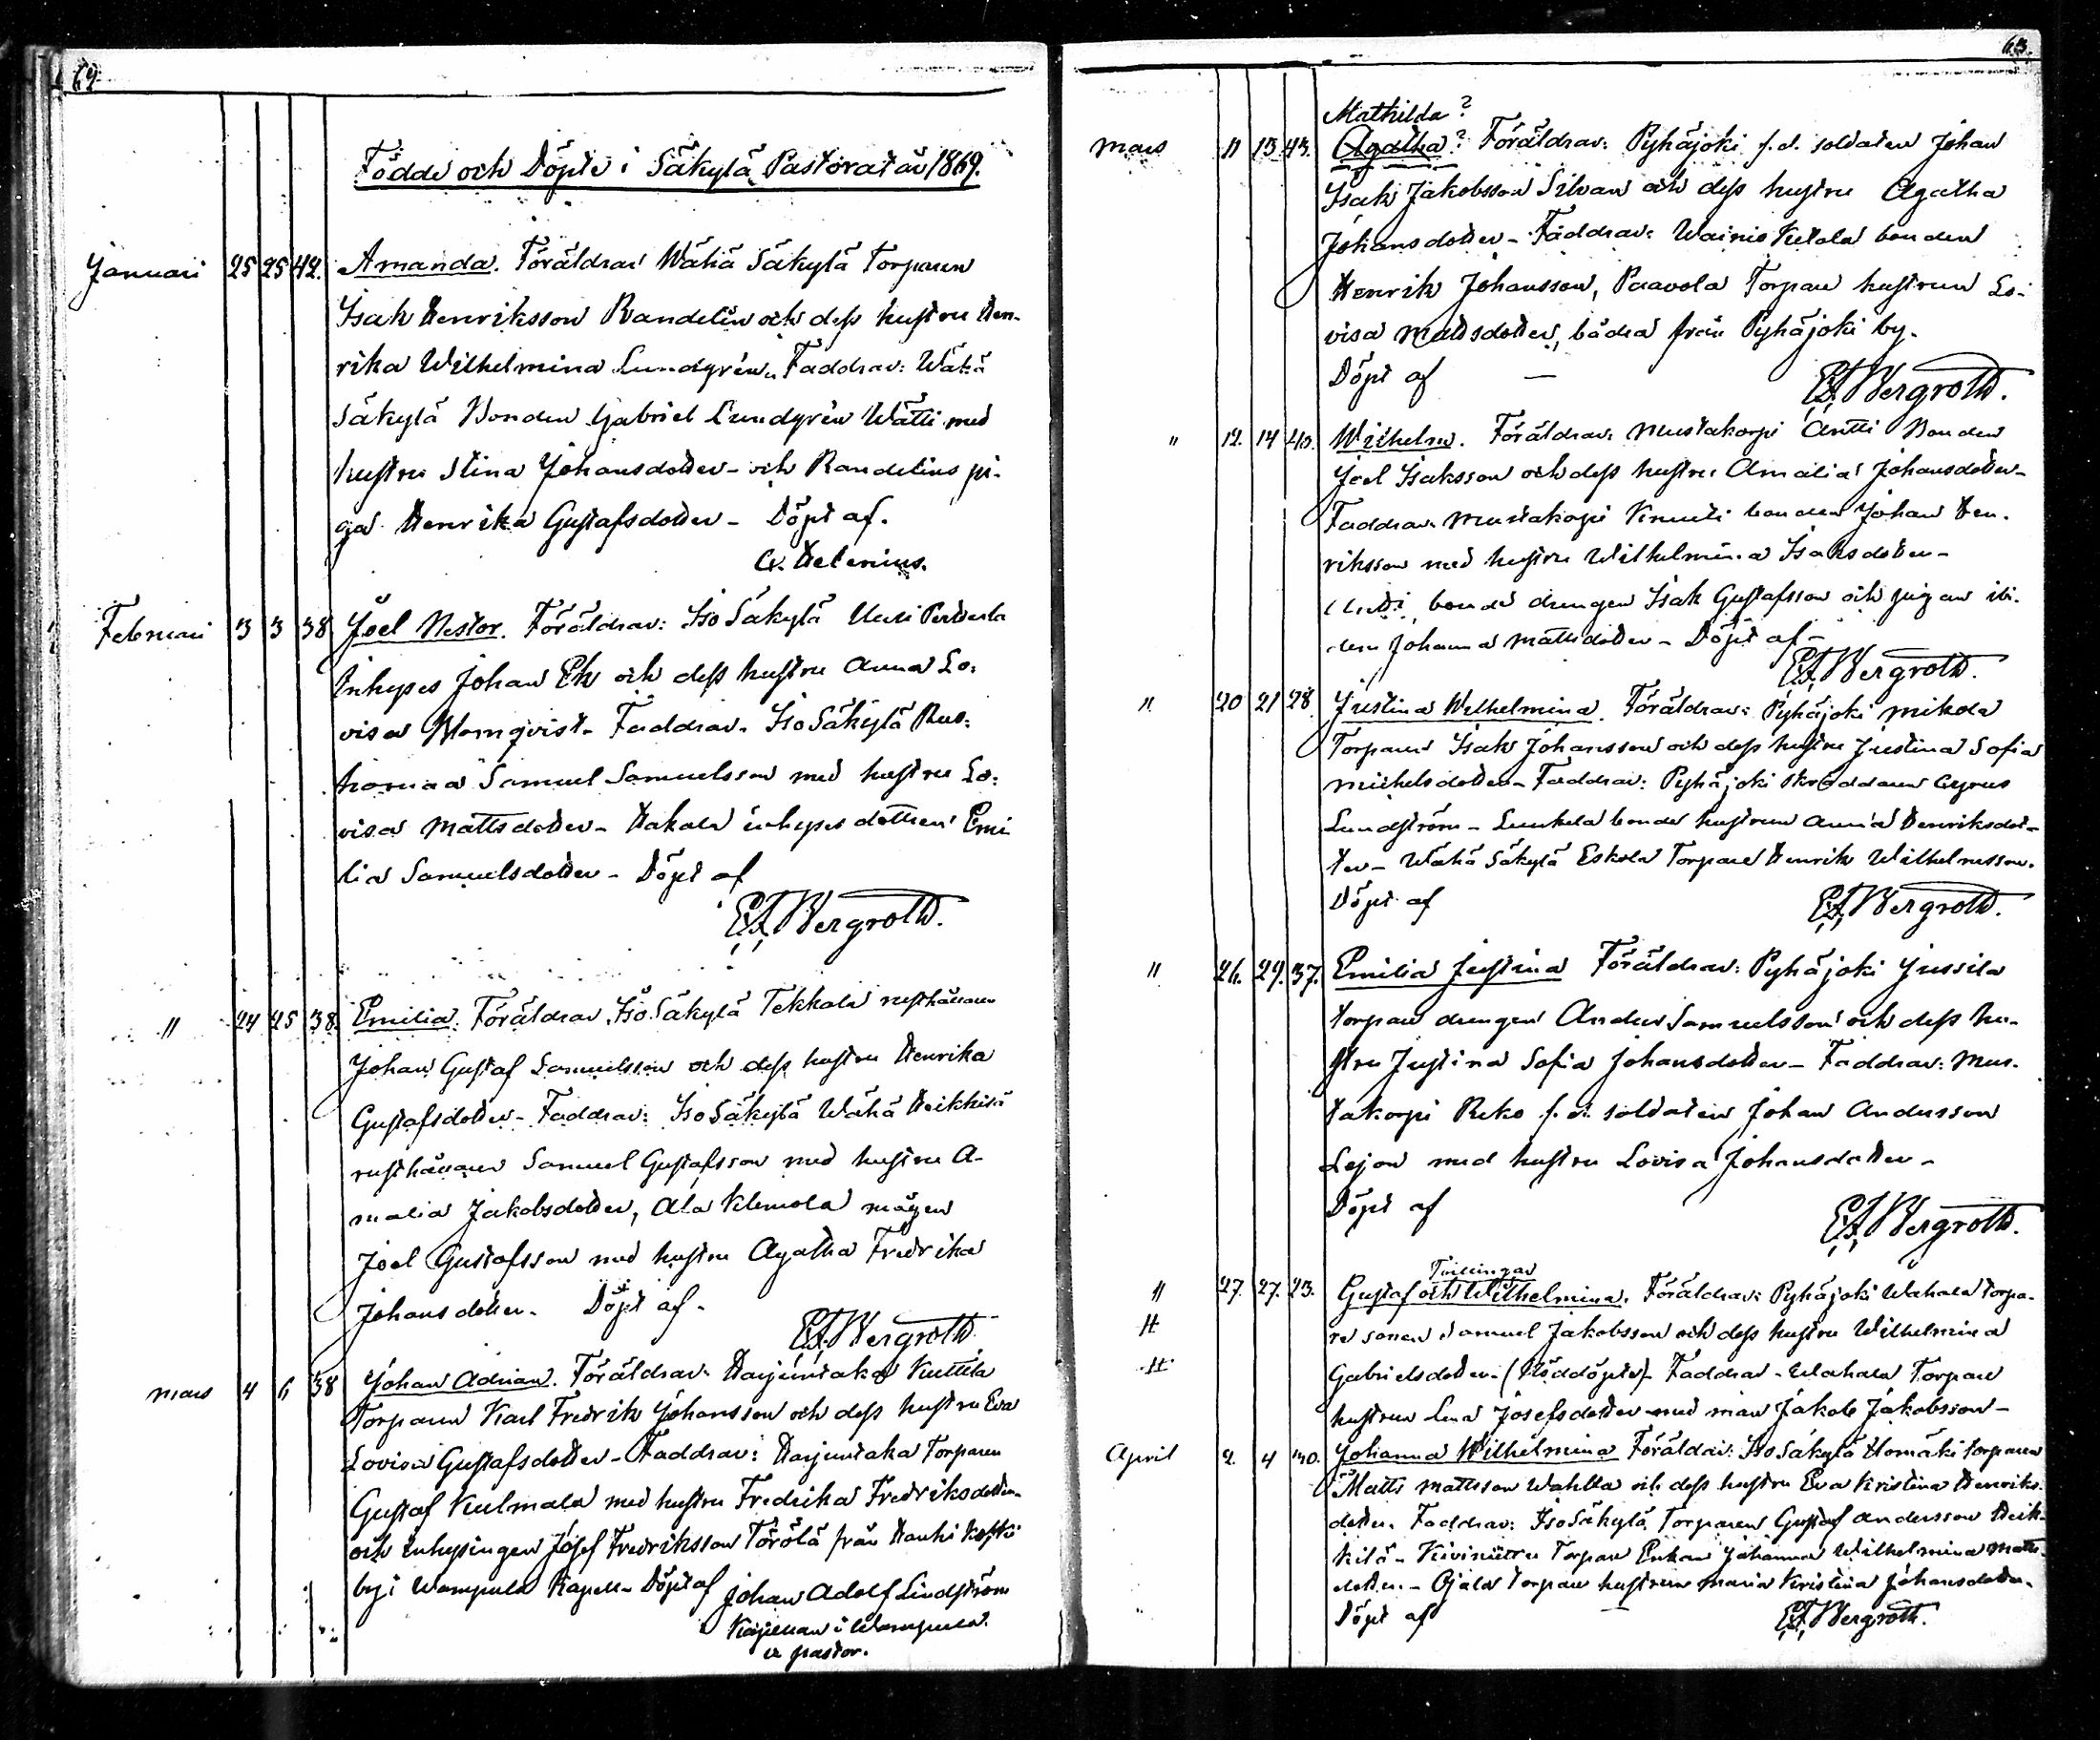 64
Födde och Döpte i Säkylä Pastorat år 1869.
Januari 25 25 42. Amanda. Föräldrar Wähä Säkylä Torparen
Isak Henriksson Randelin och dess hustru Hen-
rika Wilhelmina Lundgrén. Faddrar: Wähä
Säkylä Bonden Gabriel Lundgrén Wätti med
hustru Stina Johansdotter - och Randelins pi-
ga Henrika Gustafsdotter - Döpt af.
Helenius.
Februari 3 3 38 Joel Nestor. Föräldrar: Iso Säkylä Uusi Perttula
Inhyses Johan Ek och dess hustru Anna Lo-
visa Blomqvist - Faddrar. Iso Säkylä
Samuel Samuelsson med hustru Lo-
visa Mattsdotter - Hakala inhyses dottren Emi
lia Samuelsdotter - Döpt af
E.F. Bergroth.
" 24 25 38. Emilia. Föräldrar Iso Säkylä Tekkala rusthållaren
Johan Gustaf Samuelsson och dess hustru Henrika
Gustafsdotter - Faddrar: Iso Säkylä Wähä Heikkilä
rusthållaren Samuel Gustafsson med hustru A-
malia Jakobsdotter, Ala Klemola mågen
Joel Gustafsson med hustru Agatha Fredrika
Johansdotter. Döpt af -
E.F. Bergroth
mars 4 6 38 Johan Adrian. Föräldrar. Harjuntaka Kuttila
Torparen Karl Fredrik Johansson och dess hustru Eva
Lovisa Gustafsdotter - Faddrar: Harjuntaka Torparen
Gustaf Kulmala med hustru Fredrika Fredriksdotter
och inhysingen Josef Fredriksson Törölä från Hanhi Koski
by i Wampula Kapell - Döpt af Johan Adolf Lindström
Kapellan i Wampula.
v pastor.
63.
Mathilda?
mars 11 13 43. Agatha? Föräldrar: Pyhäjoki f.d. soldaten Johan
Isak Jakobsson Silvan och dess hustru Agatha
Johansdotter - Faddrar: Wainio Ketola bonden
Henrik Johansson, Paavola Torpare hustrun Lo-
visa Mattsdotter, bådra från Pyhäjoki by.
Döpt af — E.F. Bergroth.
" 12. 14 40. Wilhelm. Föräldrar: Mustakorpi Antti Bonden
Joel Isaksson och dess hustru Amalia Johansdotter -
Faddrar. Mustakorpi Knuuti bonden Johan Hen-
riksson med hustru Wilhelmina Isaksdotter -
bonde drengen Isak Gustafsson och pigan ibi-
dem Johanna Mattsdotter - Döpt af -
E.F. Bergroth.
" 20 21 28 Justina Wilhelmina. Föräldrar: Pyhäjoki Mikola
Torparen Isak Johansson och dess hustru Justina Sofia
Michelsdotter - Faddrar: Pyhäjoki skräddaren Cyrus
Lundström - Luukela bonde hustrun Anna Henriksdot-
ter - Wähä Säkylä Eskola Torpare Henrik Wilhelmsson.
Döpt af E.F. Bergroth.
" 26. 29. 37. Emilia Justina Föräldrar: Pyhäjoki Jussila
torpare drengen Anders Samuelsson och dess hu-
stru Justina Sofia Johansdotter - Faddrar: Mus-
takorpi Reko f.d. soldaten Johan Andersson
Lejon med hustru Lovisa Johansdotter -
Döpt af E.F. Bergroth.
Tvillingar
" 27. 27. 23. Gustaf och Wilhelmina. Föräldrar: Pyhäjoki Wahala torpa-
re sonen Samuel Jakobsson och dess hustru Wilhelmina
Gabrielsdotter - (Nöddöpte) - Faddrar - Wahala Torpare
hustrun Lena Josefsdotter med man Jakob Jakobsson -
April 2. 4 30. Johanna Wilhelmina Föräldrar: Iso Säkylä Uomäki torparen
Matts Mattsson Wahlla och dess hustru Eva Kristina Henriks-
dotter. Faddrar: Iso Säkylä Torparen Gustaf Andersson Heik-
kilä - Kivinütru Torpare Enkan Johanna Wilhelmina Matts
dotter - Ojala torpare hustrun Maria Kristina Johansdotter.
Döpt af — E.F. Bergroth.